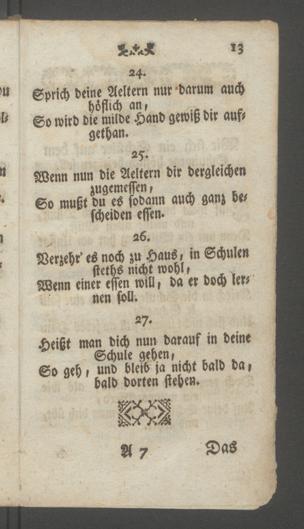 13
24.
Sprich deine Aeltern nur darum auch
höflich an,
So wird die milde Hand gewiß dir auf-
gethan.
25.
Wenn nun die Aeltern dir dergleichen
zugemessen,
So mußt du es sodann auch ganz be-
scheiden essen.
26.
Verzehr' es noch zu Haus, in Schulen
steths nicht wohl,
Wenn einer essen will, da er doch ler-
nen soll.
27.
Heißt man dich nun darauf in deine
Schule gehen,
So geh, und bleib ja nicht bald da,
bald dorten stehen.
A 7 Das